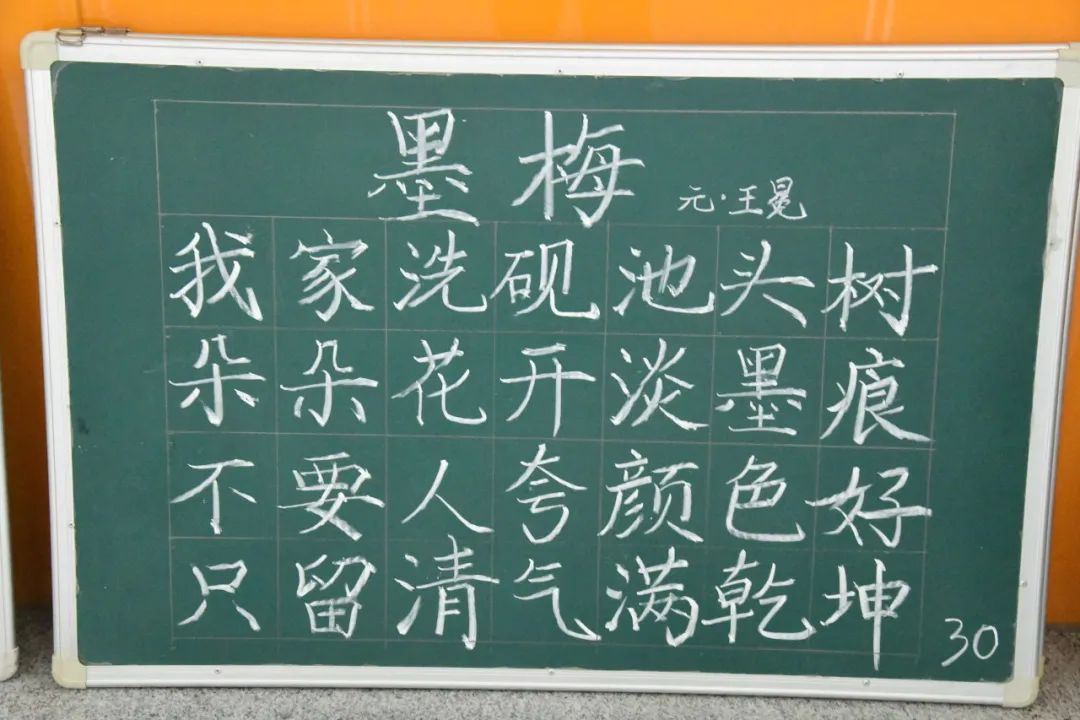 墨梅 元·王冕
我家洗砚池头树
朵朵花开淡墨痕
不要人夸颜色好
只留清气满乾坤
30